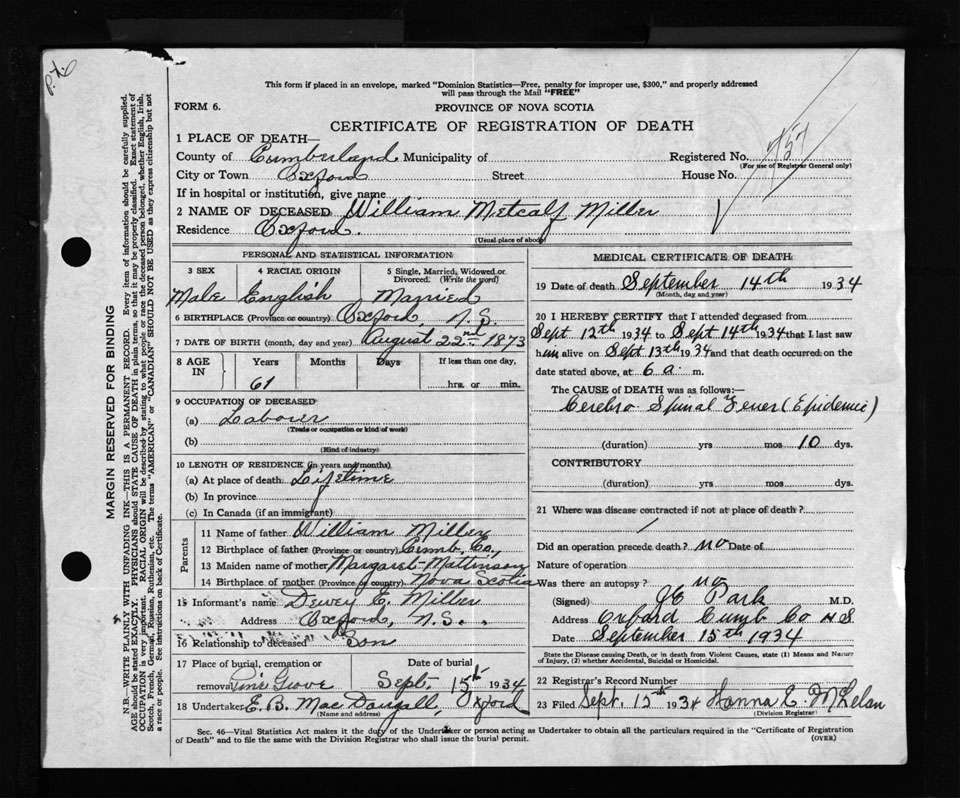 This form if placed in an envelope, marked "Dominion Statistics—Free, penalty for improper use, $300," and properly addressed
will pass through the Mail "FREE"
FORM 6.
PROVINCE OF NOVA SCOTIA
CERTIFICATE OF REGISTRATION OF DEATH
757
1 PLACE OF DEATH—
County of Cumberland Municipality of
Registered No.
(For use of Registrar General only)
City or Town Oxford Street House No.
If in hospital or institution, give name
2 NAME OF DECEASED William Metcalf Miller
Residence Oxford.
(Usual place of abode)
PERSONAL AND STATISTICAL INFORMATION
3 SEX 4 RACIAL ORIGIN 5 Single, Married, Widowed or Divorced. (Write the word)
Male English Married
6 BIRTHPLACE (Province or country) Oxford, N.S.
7 DATE OF BIRTH (month, day and year) August 22nd 1873
8 AGE IN Years Months Days If less than one day,
61 hrs. or min.
9 OCCUPATION OF DECEASED
(a) Laborer
(Trade or occupation or kind of work)
(b)
(Kind of industry)
10 LENGTH OF RESIDENCE (in years and months)
(a) At place of death Lifetime
(b) In province
(c) In Canada (if an immigrant)
Parents
11 Name of father William Miller
12 Birthplace of father (Province or country) Cumb. Co.,
13 Maiden name of mother Margaret Mattinson
14 Birthplace of mother (Province or country) Nova Scotia
15 Informant's name Dewey E. Miller
Address Oxford, N.S.,
16 Relationship to deceased Son
17 Place of burial, cremation or Date of burial
removal Pine Grove Sept. 15th 1934
18 Undertaker E. B. MacDougall, Oxford
(Name and address)
MEDICAL CERTIFICATE OF DEATH
19 Date of death September 14th 1934
(Month, day and year)
20 I HEREBY CERTIFY that I attended deceased from
Sept 12th 1934 to Sept 14th 1934 that I last saw
him alive on Sept 13th 1934 and that death occurred on the
date stated above, at 6 a. m.
The CAUSE of DEATH was as follows:—
Cerebro Spinal Fever (Epidemic)
(duration) yrs mos 10 dys.
CONTRIBUTORY
(duration) yrs mos dys.
21 Where was disease contracted if not at place of death?
Did an operation precede death? no Date of
Nature of operation
Was there an autopsy? no
(Signed) Park M.D.
Address Oxford Cumb Co N S
Date September 15th 1934
State the Disease causing Death, or in death from Violent Causes, state (1) Means and Nature
of Injury, (2) whether Accidental, Suicidal or Homicidal.
22 Registrar's Record Number
23 Filed Sept. 15th 1934 Hanna E McLelan
(Division Registrar)
Sec. 46—Vital Statistics Act makes it the duty of the Undertaker or person acting as Undertaker to obtain all the particulars required in the "Certificate of Registration
of Death" and to file the same with the Division Registrar who shall issue the burial permit.
(OVER)
MARGIN RESERVED FOR BINDING
N.B.—WRITE PLAINLY WITH UNFADING INK—THIS IS A PERMANENT RECORD. Every item of information should be carefully supplied.
AGE should be stated EXACTLY. PHYSICIANS should STATE CAUSE OF DEATH in plain terms, so that it may be properly classified. Exact statement of
OCCUPATION is very important. RACIAL ORIGIN will be described by stating to what people or race the deceased person belonged, whether English, Irish,
Scotch, French, German, Russian, Ruthenian, etc. The terms "AMERICAN" or "CANADIAN" SHOULD NOT BE USED as they express citizenship but not
a race or people. See instructions on back of Certificate.